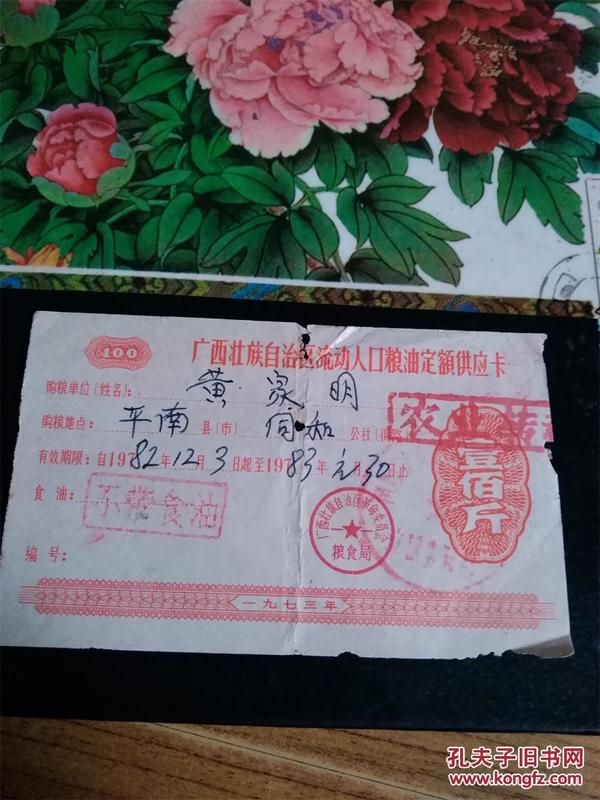 100
广西壮族自治区流动人口粮油定额供应卡
购粮单位(姓名): 黄家明
购粮地点: 平南县(市) 同和公社(街
农业
有效期限: 自1982年12月3日起至1983年元月30日止
壹佰斤
食油: 不带食油
广西壮族自治区革命委员会
粮食局
编号:
一九七三年
孔夫子旧书网
www.kongfz.com